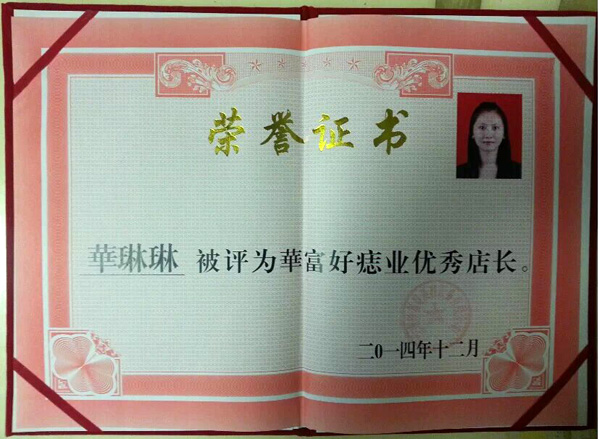 荣誉证书
華琳琳 被评为華富好痣业优秀店长。
二0一四年十二月